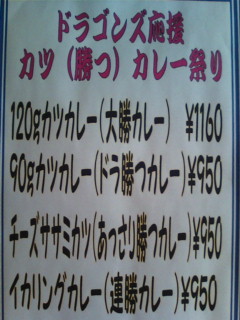 ドラゴンズ応援
カツ（勝つ）カレー祭り
120gカツカレー(大勝カレー) ¥1160
90gカツカレー(ドラ勝つカレー)¥950
チーズササミカツ(あっさり勝つカレー)¥950
イカリングカレー(連勝カレー)¥950